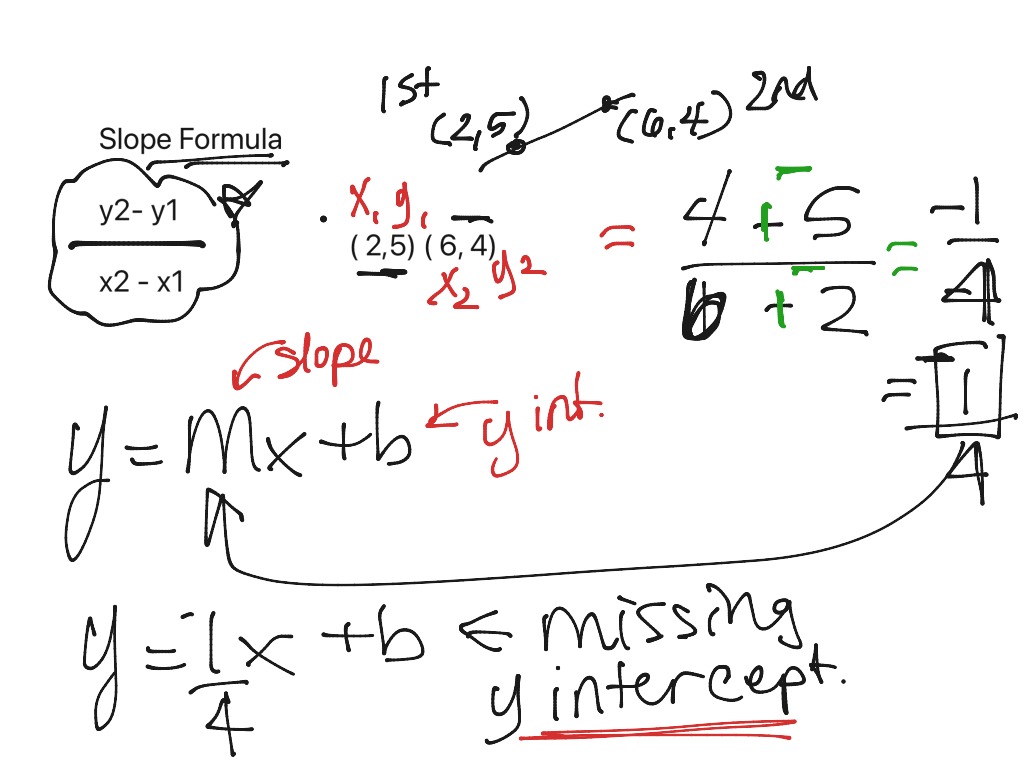 1st (2,5) (6,4) 2nd
Slope Formula
y2- y1
x2 - x1
x1 y1
( 2,5) ( 6, 4)
x2 y2
= 4 + -5 = -1
6 + -2 4
= -1
4
slope
y = mx + b ← y int.
y = -1x + b ← missing
4
y intercept.